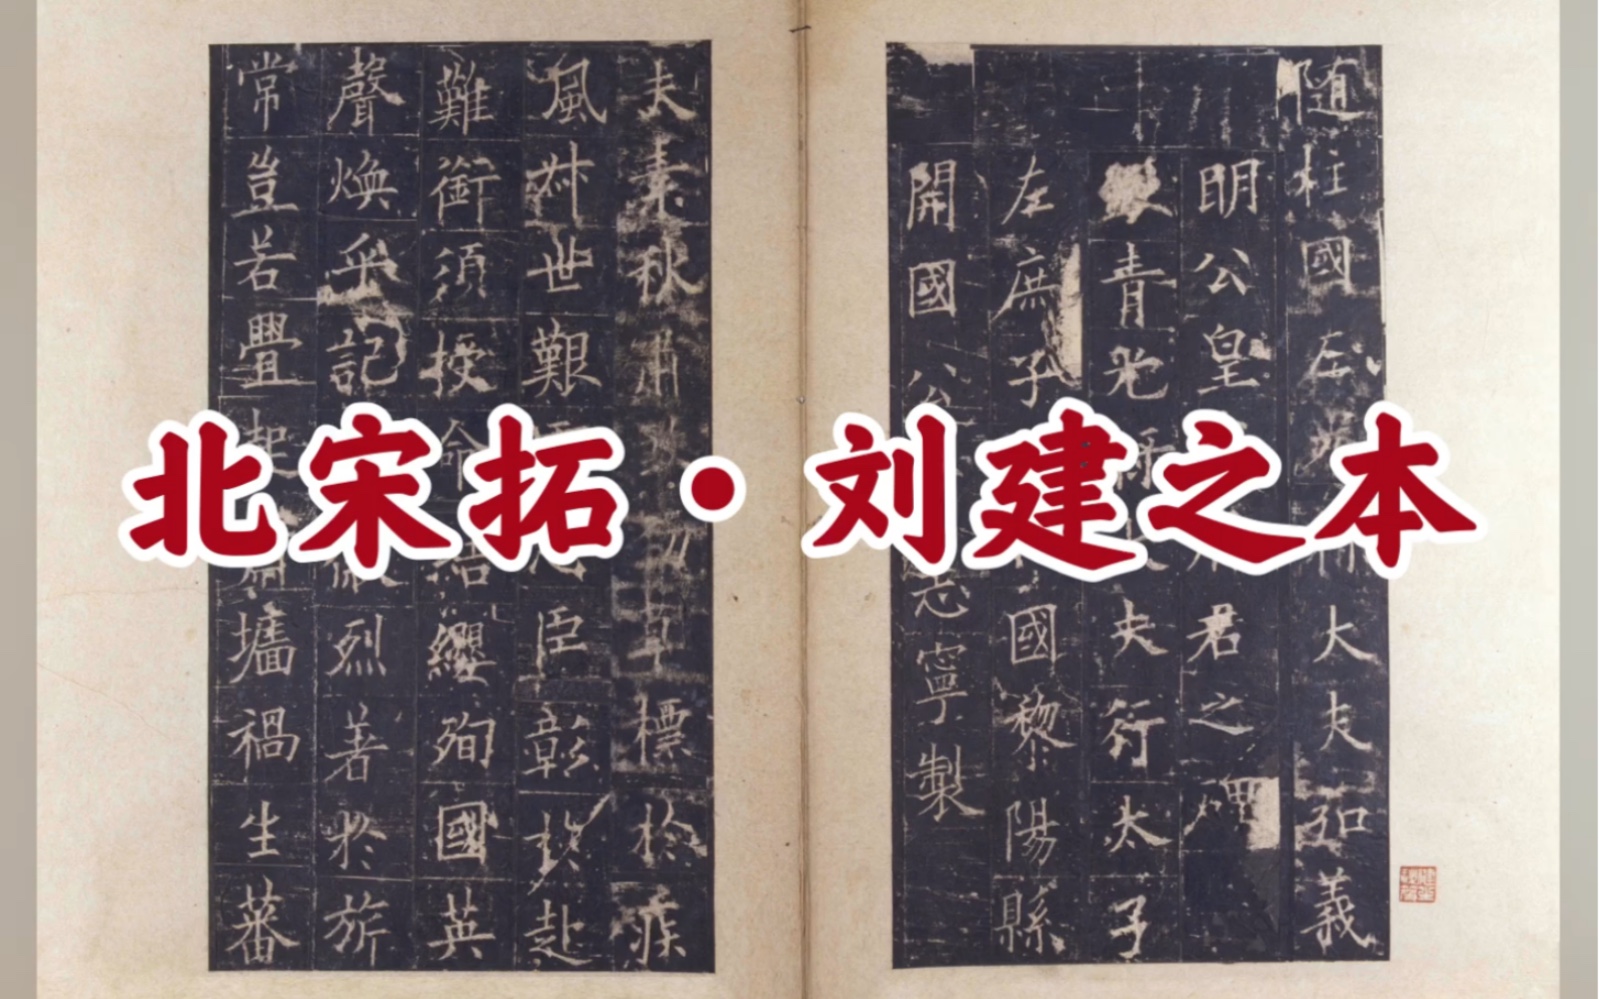 北宋拓·刘建之本
随柱國左光大夫弘義
明公皇君之碑
青光夫行太子
左庶子國黎陽縣
開國公志寧製
夫素秋肅草標於疾
風叔世艱臣彰於赴
難銜須授命結纓殉國英
聲煥乎記烈著於旂
常豈若疊起墻禍生蕃